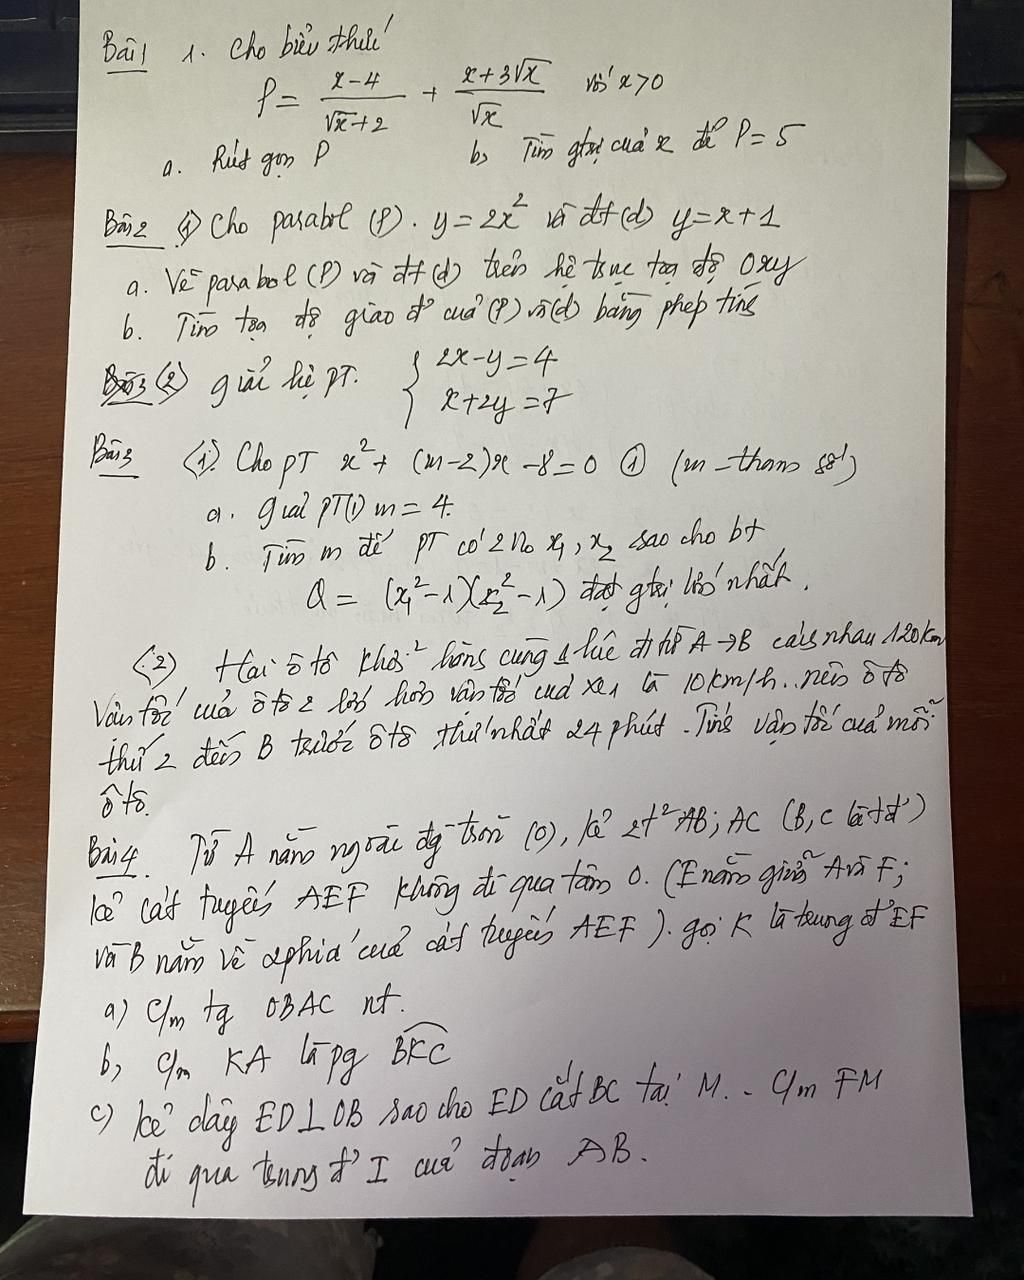 Bài 1 1. Cho biểu thức
P = \frac{x-4}{\sqrt{x}+2} + \frac{x+3\sqrt{x}}{\sqrt{x}} với x>0
a. Rút gọn P b, Tìm gtrị của x để P=5
Bài 2 (1) Cho parabol (P). y=2x² và đt (d) y=x+1
a. Vẽ parabol (P) và đt (d) trên hệ trục tọa độ Oxy
b. Tìm tọa độ giao đ' của (P) và (d) bằng phép tính
(2) giải hệ PT. { 2x-y=4
x+2y=7
Bài 3 (1). Cho PT x²+ (m-2)x -8=0 ① (m - tham số)
a. giải PT(1) m=4.
b. Tìm m để PT có 2 no x₁, x₂ sao cho bt
Q = (x₁²-1)(x₂²-1) đạt gtrị lớn nhất.
(2) Hai ô tô khởi hành cùng 1 lúc đi từ A→B cách nhau 120km
Vận tốc của ô tô 2 lớn hơn vận tốc của xe 1 là 10km/h.. nên ô tô
thứ 2 đến B trước ô tô thứ nhất 24 phút. Tính vận tốc của mỗi
ô tô.
Bài 4. Từ A nằm ngoài đg tròn (O), kẻ 2t² AB; AC (B, C là tđ')
kẻ cát tuyến AEF không đi qua tâm O. (E nằm giữa A và F;
và B nằm về 2 phía của cát tuyến AEF). gọi K là trung đ' EF
a) C/m tg OBAC nt.
b, C/m KA là pg \widehat{BKC}
c) kẻ dây ED⊥OB sao cho ED cắt BC tại M. - C/m FM
đi qua trung đ' I của đoạn AB.